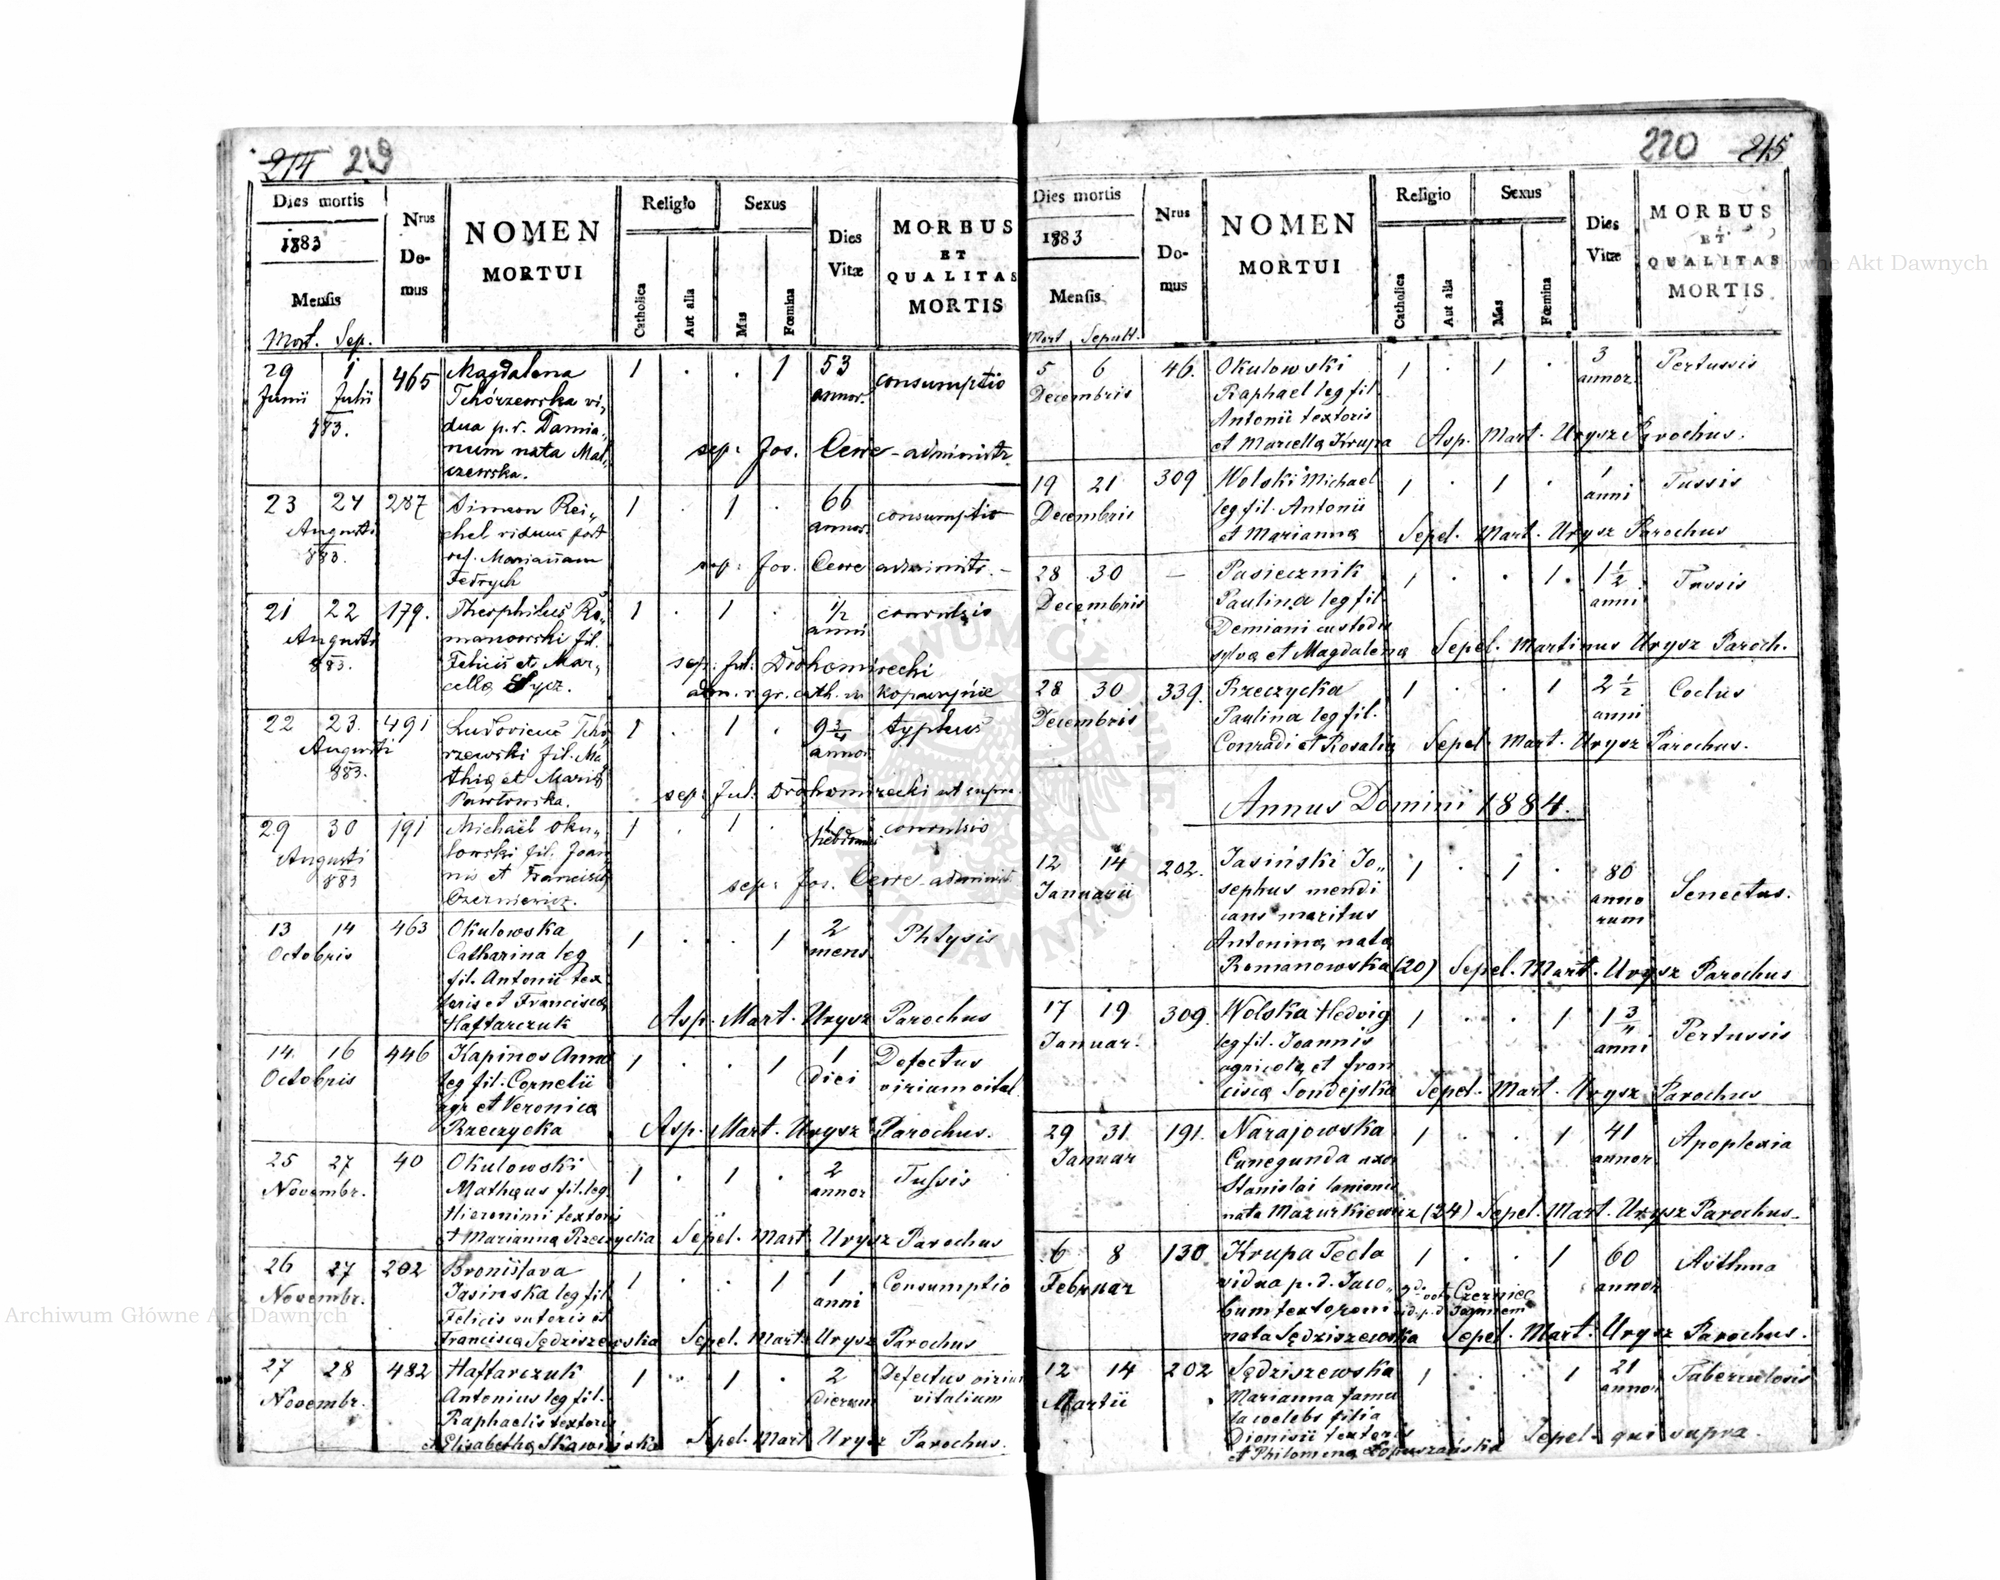 214 219
Dies mortis
1883
Mensis
Mort. Sep.
Nrus Do-mus
NOMEN
MORTUI
Religio
Catholica
Aut alia
Sexus
Mas
Fœmina
Dies
Vitæ
MORBUS
ET
QUALITAS
MORTIS
29 1 465 Magdalena 1 . . 1 53 consumptio
Junii Julii Tchórzewska vi„ annor.
883. dua p. d. Damia„
num nata Mal„ sep: Jos. Cewe administr.
czewska.
23 24 287 Simeon Rei„ 1 . 1 . 66 consumptio
Augusti chel viduus post annor.
883. Mariannam sep: Jos. Cewe administr. –
Fedrych
21 22 179. Theophilus Ro„ 1 . 1 . 1/2 convulsio
Augusti manowski fil. anni
883. Felicis et Mar„ sep: Jul: Drohomirecki
cellæ Łycz. adm. r. gr. cath. in
22 23. 491 Ludovicus Tchó 1 . 1 . 9 3/4 typhus
Augusti rzewski fil. Ma annor
883. thiæ et Mariæ
Pawłowska. sep: Jul: Drohomirecki ut supra
29 30 191 Michaël Oku„ 1 . 1 . convulsio
Augusti lowski fil. Joan
883 nis et Franciscæ sep: Jos. Cewe administ.
Czerniewicz.
13 14 463 Okulowska 1 . . 1 2 Phtysis
Octobris Catharina leg mens
fil. Antonii tex
toris et Franciscæ Asp. Mart. Urysz Parochus
Haftarczuk
14 16 446 Kapinos Anna 1 . . 1 1 Defectus
Octobris leg fil. Cornelii diei virium vital
agr et Veronicæ
Rzeczycka Asp. Mart. Urysz Parochus.
25 27 40 Okulowski 1 . 1 . 2 Tussis
Novembr. Mathæus fil. leg. annor
Hieronimi textoris
et Marianna Rzeczycka Sepel. Mart Urysz Parochus
26 27 202 Bronislava 1 . . 1 1 Consumptio
Novembr. Jasinska leg fil anni
Felicis sutoris et
Francisca Sędziszewska Sepel. Mart Urysz Parochus
27 28 482 Haftarczuk 1 . 1 . 2 Defectus virium
Novembr. Antonius leg fil. dierum vitalium
Raphaelis textoris
et Elisabetha Skawińska Sepel. Mart Urysz Parochus.
220 215
Dies mortis
1883
Mensis
Mort Sepult.
Nrus
Do-
mus
NOMEN
MORTUI
Religio
Catholica
Aut alia
Sexus
Mas
Fœmina
Dies
Vitæ
MORBUS
ET
QUALITAS
MORTIS
5 6 46. Okulowski 1 . 1 . 3 Pertussis
Decembris Raphael leg fil. annor.
Antonii textoris
et Marcella Krupa Asp. Mart. Urysz Parochus.
19 21 309 Wolski Michael 1 . 1 . 1 Tussis
Decembris leg fil. Antonii anni
et Marianna Sepel. Mart. Urysz Parochus
28 30 – Pasiecznik 1 . . 1 . 1 1/2 Tussis
Decembris Paulina leg fil anni
Demiani custodis
sylvæ et Magdalena Sepel. Martinus Urysz Paroch.
28 30 339. Rzeczycka 1 . . 1 2 1/2
Decembris Paulina leg fil. anni
Conradi et Rosalia Sepel. Mart. Urysz Parochus.
Annus Domini 1884.
12 14 202. Jasiński Jo„ 1 . 1 . 80 Senectus.
Januarii sephus mendi anno
cans maritus rum
Antoninæ nata
Romanowska (20) Sepel. Mart. Urysz Parochus
17 19 309. Wolska Hedvig 1 . . 1 1 3/4 Pertussis
Januar. leg fil. Joannis anni
agricolæ et Fran
cisca Sondejska Sepel. Mart. Urysz Parochus
29 31. 191. Narajowska 1 . . 1 41 Apoplexia
Januar Cunegunda uxor annor
Stanislai lanionis
nata Mazurkiewicz (24) Sepel. Mart. Urysz Parochus.
6 8 130 Krupa Tecla 1 . . 1 60 Asthma
Februar vidua p. d. Jaco„ annor
bum textorem Czerniec
vid. p. d. Joannem
nata Sędziszewska Sepel. Mart. Urysz Parochus.
12 14 202 Sędziszewska 1 . . 1 21 Tuberculosis
Martii Marianna famu annor
la coelebs filia
Dionisii textoris Sepel. qui supra.
et Philomena Łopuszańska
Archiwum Główne Akt Dawnych
Archiwum Główne Akt Dawnych
ARCHIWUM GŁÓWNE AKT DAWNYCH